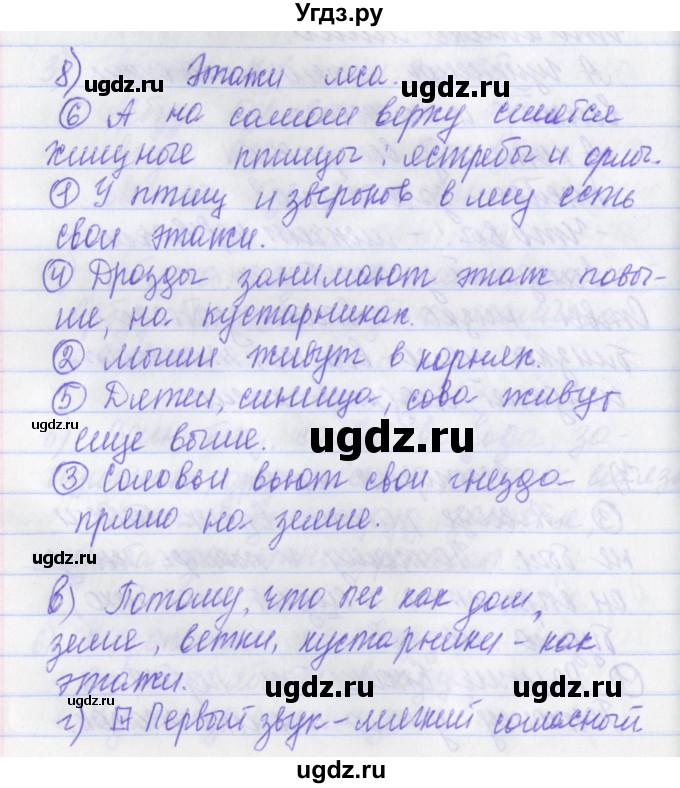 Угдз.ру
8) Этажи леса.
ugdz.ru ugdz.ru
⑥ А на самом верху селятся
хищные птицы: ястребы и орлы.
① У птиц и зверьков в лесу есть
свои этажи.
ugdz.ru
④ Дрозды занимают этаж повы-
ше, на кустарниках.
② Мыши живут в корнях.
⑤ Дятел, синица, сова живут
еще выше.
ugdz.ru ugdz.ru
③ Соловьи вьют свои гнезда
прямо на земле.
ugdz.ru
в) Потому, что лес как дом,
земле, ветки, кустарники - как
этажи.
ugdz.ru ugdz.ru
г) Первый звук - мягкий согласный
ugdz.ru